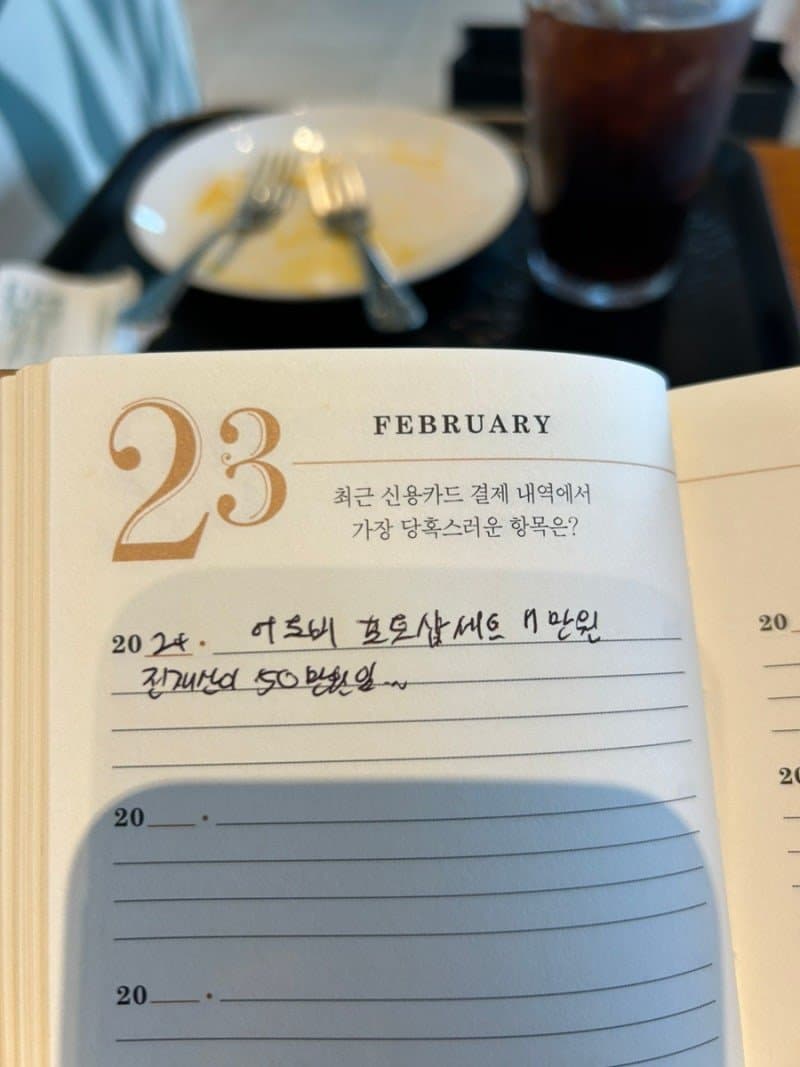 23
FEBRUARY
최근 신용카드 결제 내역에서
가장 당혹스러운 항목은?
2024. 어도비 포토샵세트 11만원
전재산이 50만원일..
20
20
20
20